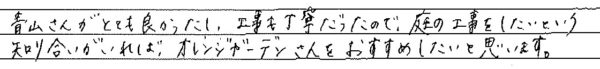 青山さんがとても良かったし、工事も丁寧だったので、庭の工事をしたいという
知り合いがいれば、オレンジガーデンさんをおすすめしたいと思います。